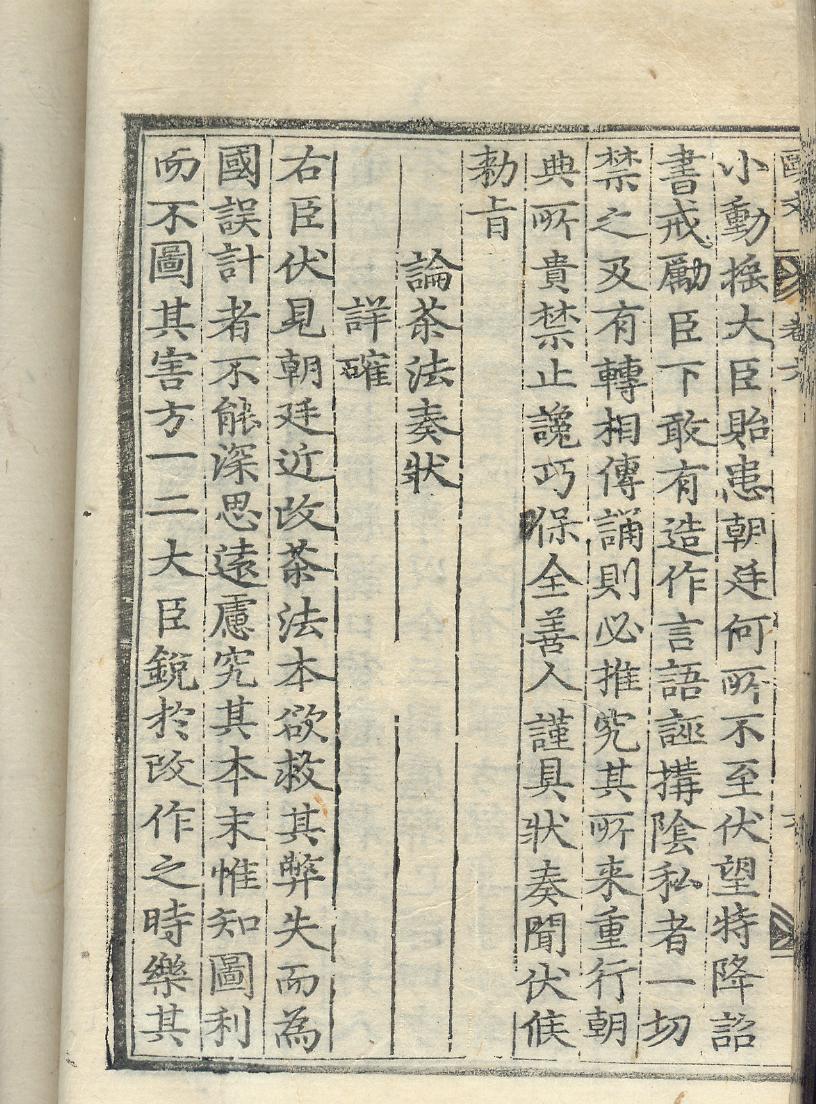 歐文 卷六
小動搖大臣貽患朝廷何所不至伏望特降詔
書戒勵臣下敢有造作言語誣搆陰私者一切
禁之及有轉相傳誦則必推究其所來重行朝
典所貴禁止讒巧保全善人謹具狀奏聞伏候
勑旨
論茶法奏狀
詳確
右臣伏見朝廷近改茶法本欲救其弊失而為
國誤計者不能深思遠慮究其本末惟知圖利
而不圖其害方一二大臣銳於改作之時樂其